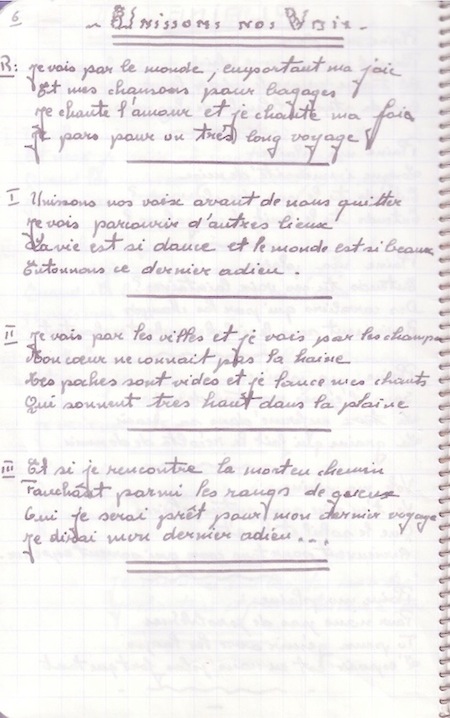 6
- Unissons nos Voix -
R: Je vais par le monde, emportant ma joie
Et mes chansons pour bagages
Je chante l'amour et je chante ma foie
Je pars pour un très long voyage
I Unissons nos voix avant de nous quitter
Je vais parcourir d'autres lieux
La vie est si douce et le monde est si beau
Entonnons ce dernier adieu.
II Je vais par les villes et je vais par les champs
Mon cœur ne connait pas la haine
Mes poches sont vides et je lance mes chants
Qui sonnent très haut dans la plaine
III Et si je rencontre la mort en chemin
Fauchant parmi les rangs de gueux
Oui je serai prêt pour mon dernier voyage
Je dirai mon dernier adieu...